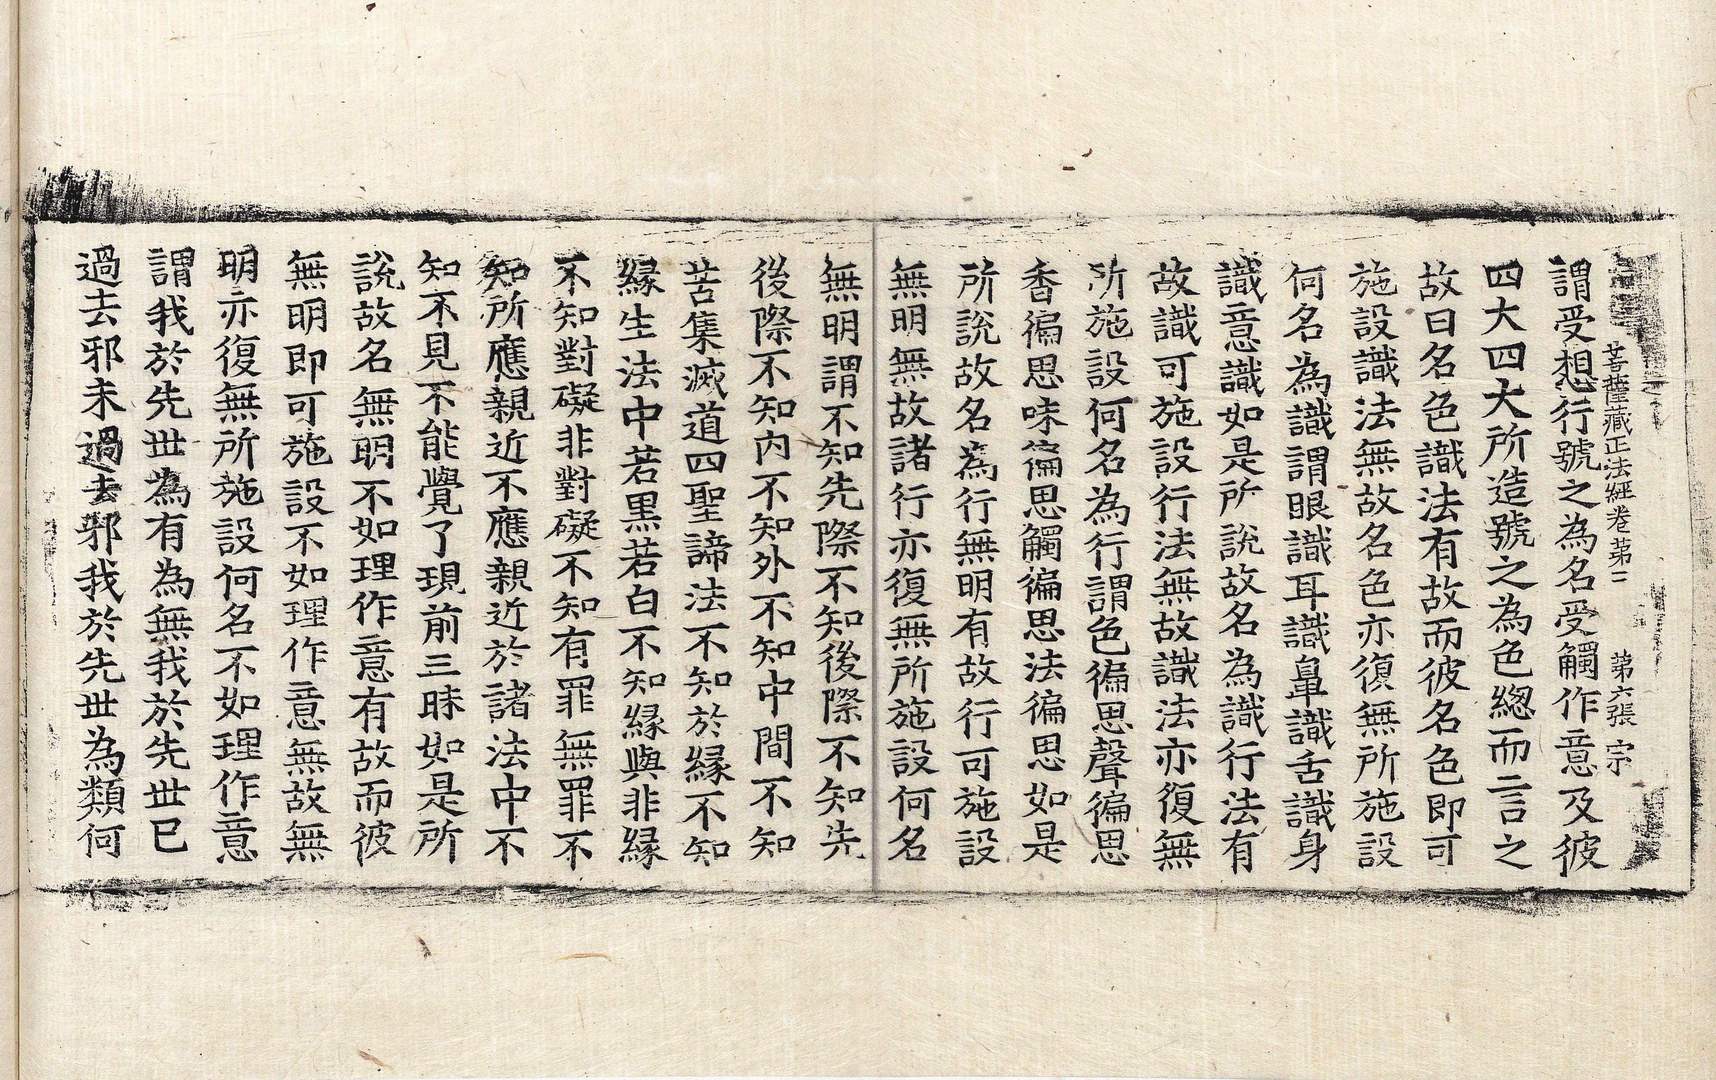 菩薩藏正法經卷第三 第六張 宗
謂受想行號之為名受觸作意及彼
四大四大所造號之為色總而言之
故曰名色識法有故而彼名色即可
施設識法無故名色亦復無所施設
何名為識謂眼識耳識鼻識舌識身
識意識如是所說故名為識行法有
故識可施設行法無故識法亦復無
所施設何名為行謂色徧思聲徧思
香徧思味徧思觸徧思法徧思如是
所說故名為行無明有故行可施設
無明無故諸行亦復無所施設何名
無明謂不知先際不知後際不知先
後際不知內不知外不知中間不知
苦集滅道四聖諦法不知於緣不知
緣生法中若黑若白不知緣與非緣
不知對礙非對礙不知有罪無罪不
知所應親近不應親近於諸法中不
知不見不能覺了現前三昧如是所
說故名無明不如理作意有故而彼
無明即可施設不如理作意無故無
明亦復無所施設何名不如理作意
謂我於先世為有為無我於先世已
過去邪未過去邪我於先世為類何